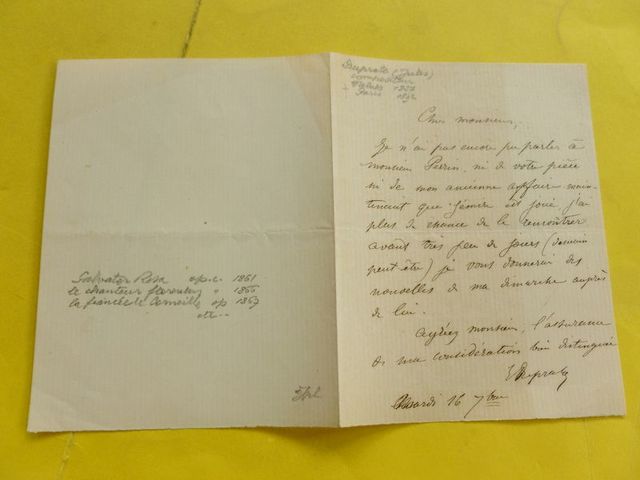 Salvator Rosa op.c. 1861
le chanteur florentin " 1866
la fiancée de Corneille op 1869
etc...
Duprato (Jules)
compositeur
Nîmes 1827
+ Paris 1892
Cher monsieur,
Je n'ai pas encore pu parler à
monsieur Perrin, ni de votre pièce
ni de mon ancienne affaire main-
tenant que est joué j'ai
plus de chance de le rencontrer
avant très peu de jours (demain
peut-être) je vous donnerai des
nouvelles de ma démarche auprès
de lui.
agréez monsieur, l'assurance
de ma considération bien distinguée
J Duprato
Mardi 16 7bre